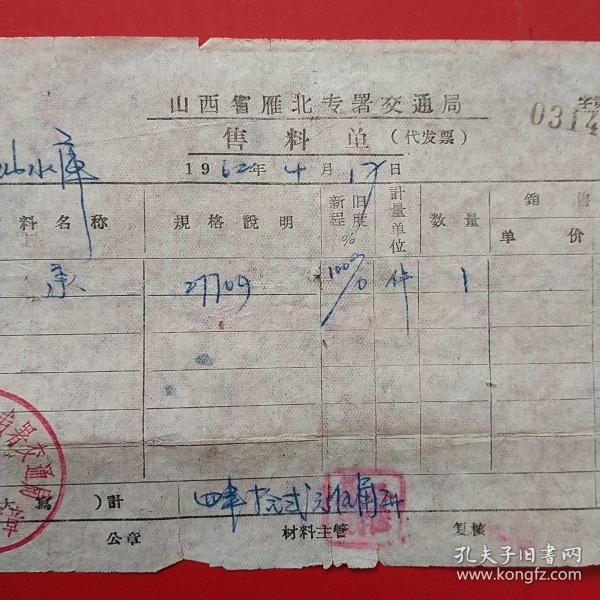 山西省雁北专署交通局
字第
0314
售料单(代发票)
水库
1962年4月17日
料名称 规格說明 新旧程度% 計量单位 数量 銷售
单价
承 27709 100% 件 1
署交通局
大寫)計 四 拾 元 伍角
公章 材料主管 复核
孔夫子旧书网
www.kongfz.com